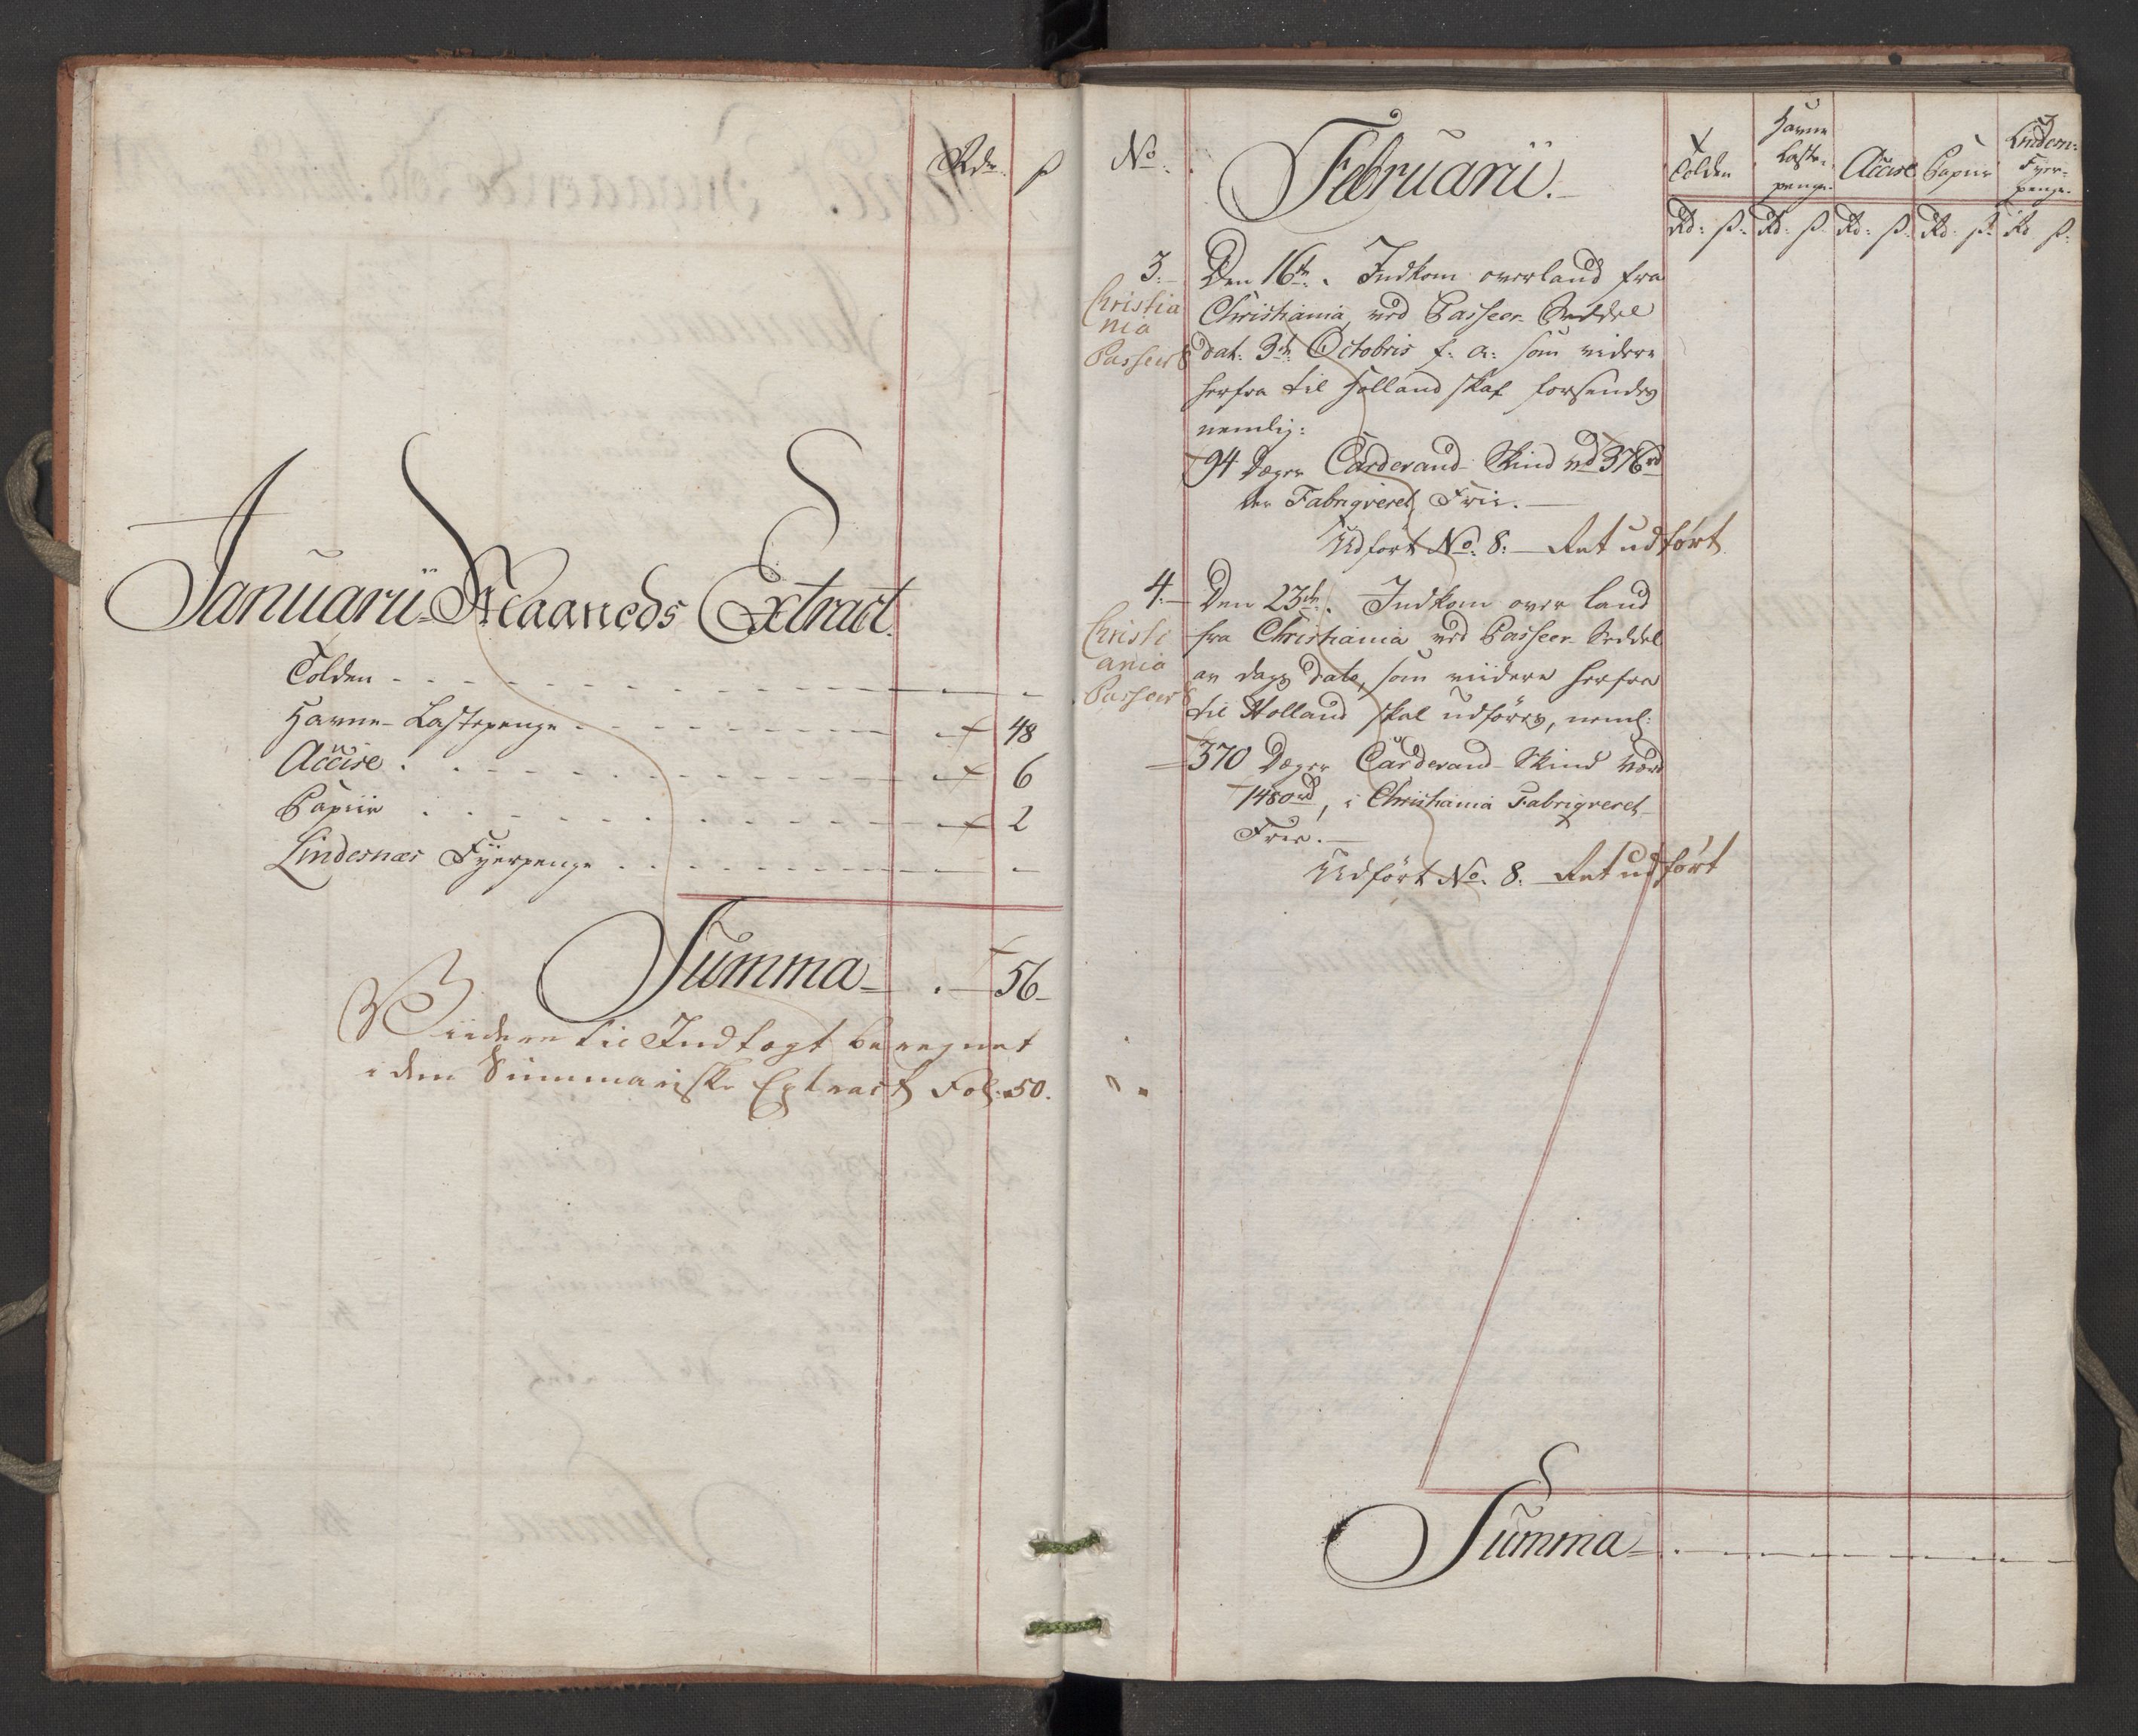 Rdr. ß
Januarii Maaneds Extract.
Tolden - -
Havne-Lastepenge - 48
Accise . - 6
Papiir . - 2
Lindesnæs Fyerpenge . - -
Summa . 56
Viidere til Indtægt beregnet
i den Summariske Extract Fol: 50.
No.
Februarii.
Tolden
Havne Laste-penge.
Accise
Papiir
Lindesn: Fyer-penge.
Rd: ß: Rd: ß Rd: ß: Rd: ß: Rd ß:
3.
Christia
nia
Passeer S
Den 16de. Indkom overland fra
Christiania, ved Passeer-Seddel
dat: 3de Octobris f: a: som videre
herfra til Holland skal forsendes
nemlig:
94 Deger Carderand-Skind vd 376rd
der Fabriqveret, Frie.
Udført No. 8: Ret udført
4.
Christi
ania
Passeer S
Den 23de. Indkom over land
fra Christiania ved Passeer-Seddel
av dags dato, som viidere herfra
til Holland skal udføres, neml:
370 Deger Carderand-Skind værd
1480rd, i Christiania Fabriqveret
Frie.
Udført No. 8: Ret udført
Summa